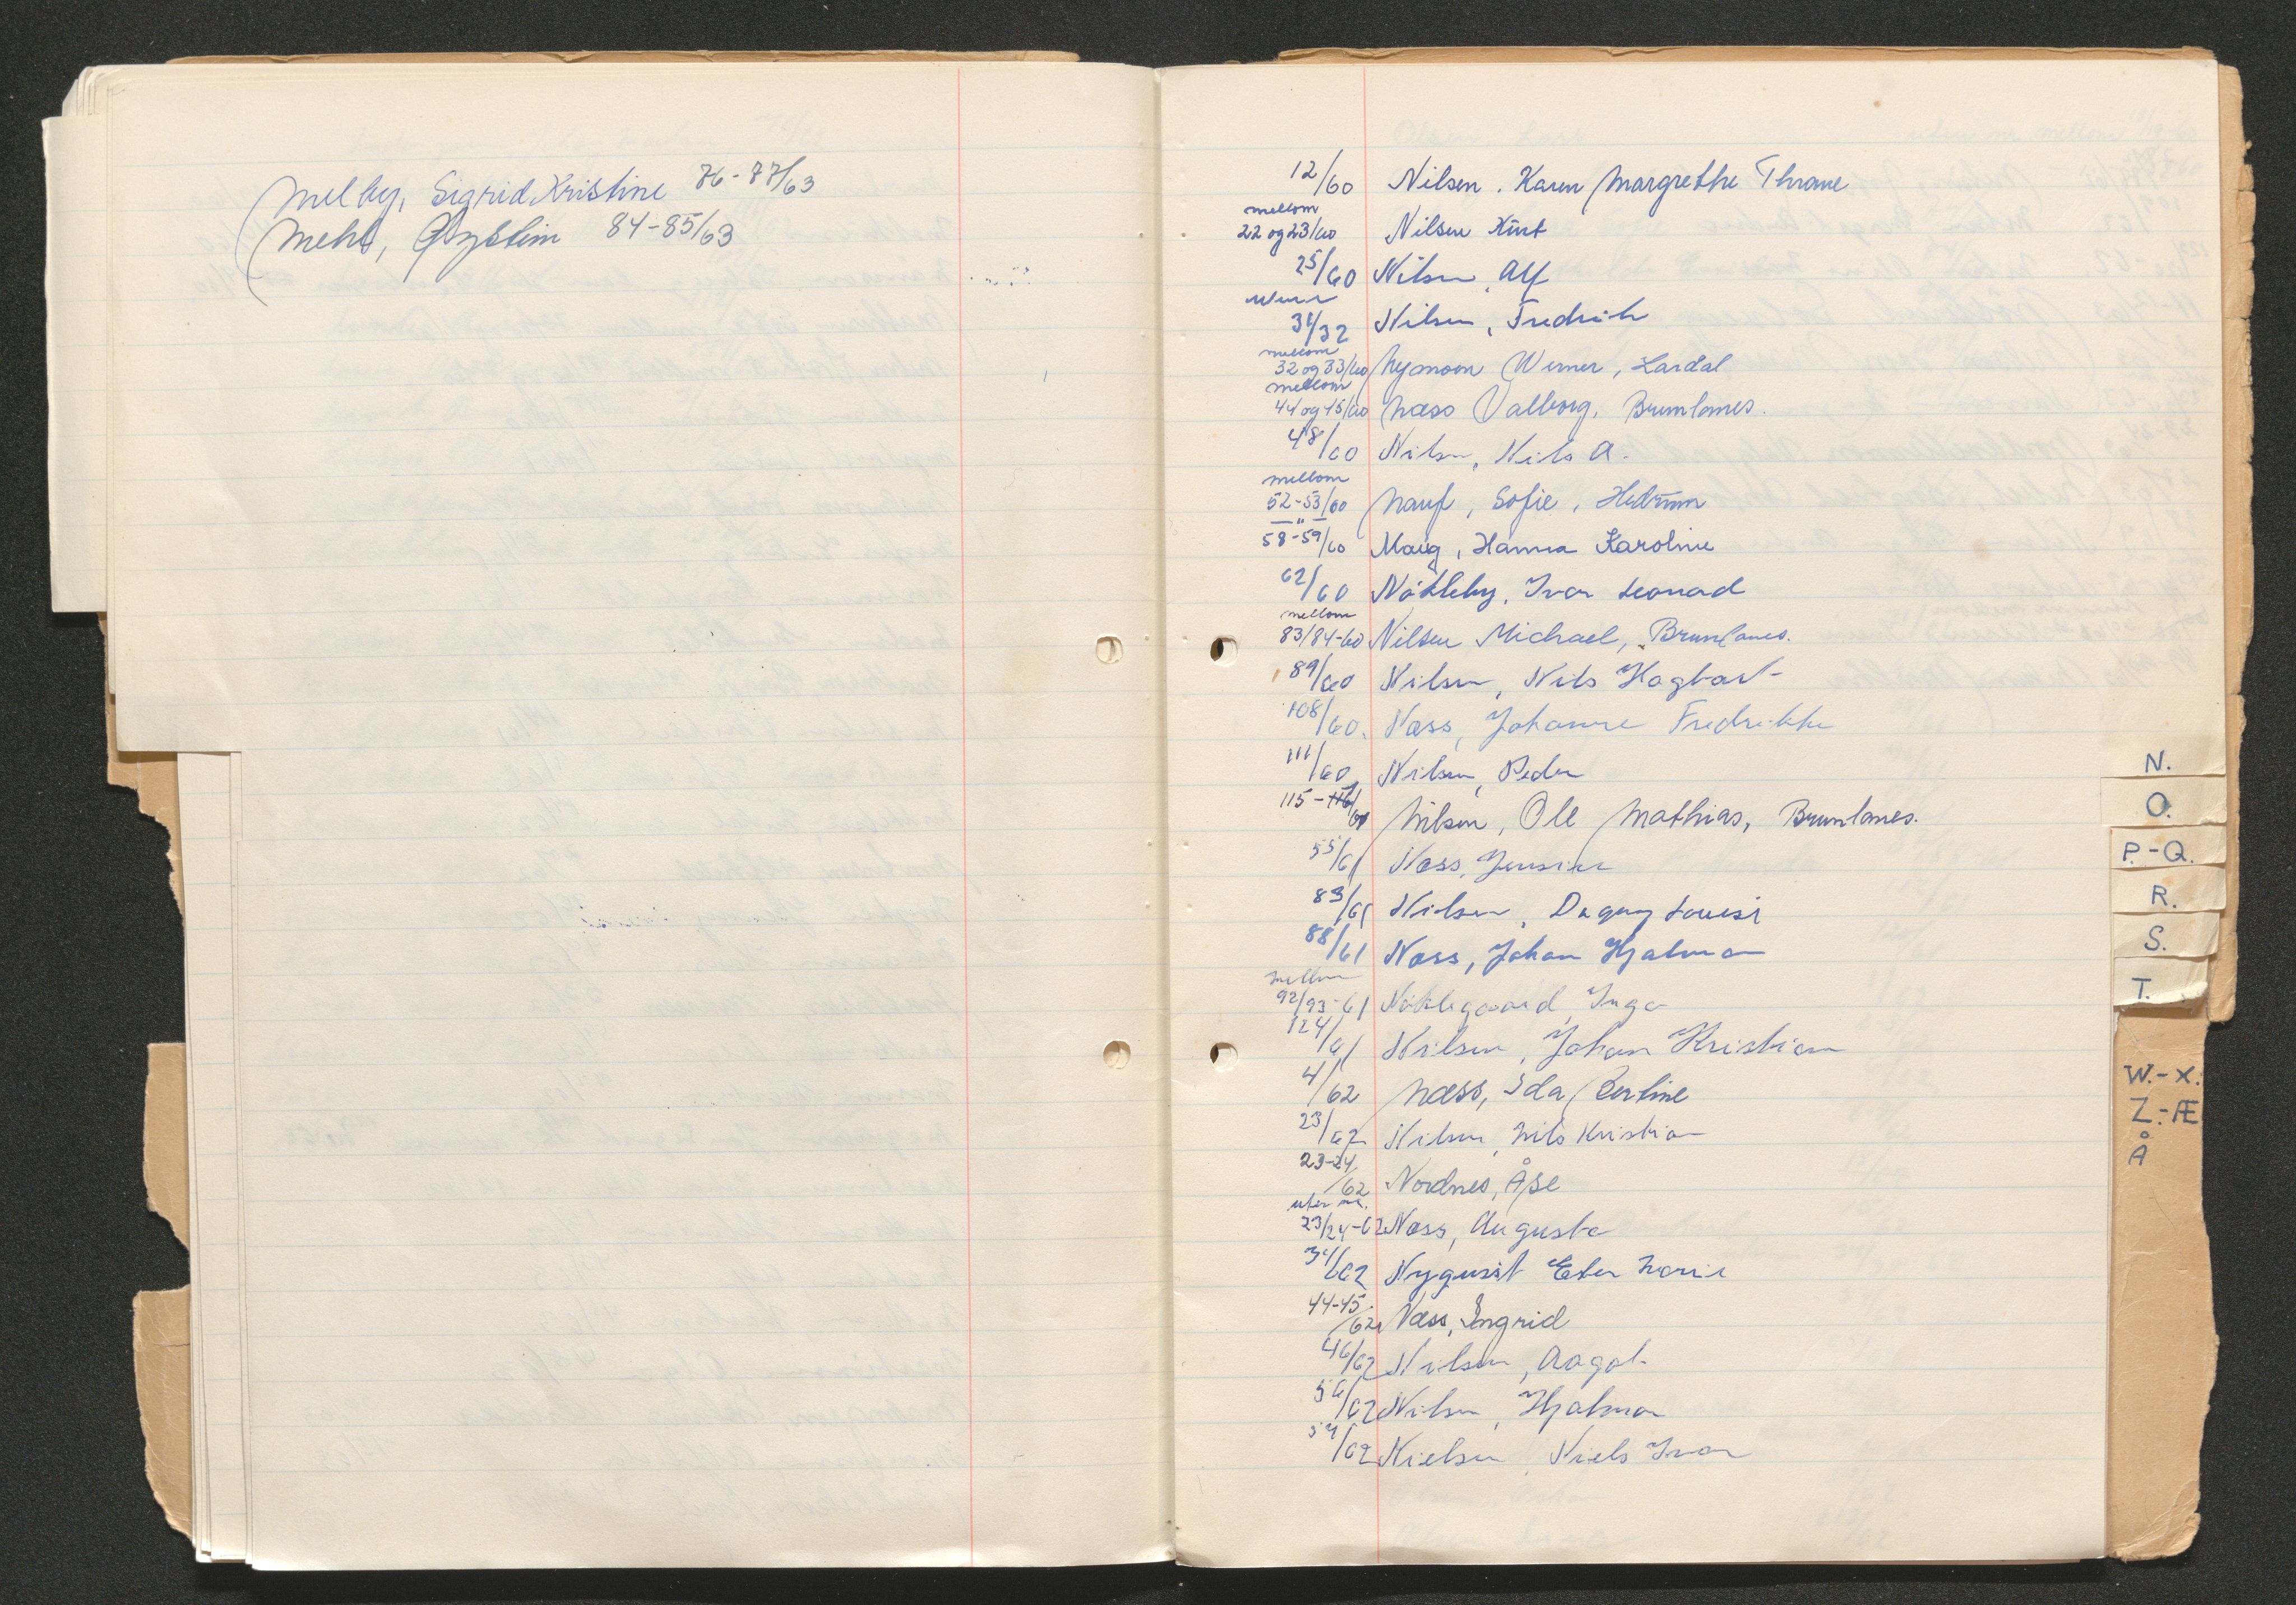 Melby, Sigrid Kristine 76-77/63
Mehl, Øystein 84-85/63
12/60 Nilsen, Karen Margrethe Thrane
mellom
22 og 23/60 Nilsen Knut
25/60 Nilsen, Alf
31/32 Nilsen, Fredrik
mellom
32 og 33/60 Nymoen Werner, Lardal
mellom
44 og 45/60 Næss Valborg, Brunlanes.
48/60 Nilsen, Nils A.
mellom
52-53/60 Nauf, Sofie, Hedrum
— " —
58-59/60 Haug, Hanna Karoline
62/60 Nøkleby, Ivar Leonard
mellom
83/84-60 Nilsen Michael, Brunlanes.
89/60 Nilsen, Nils Hagbart
108/60. Næss, Johanne Fredrikke
111/60 Nilsen, Peder
115-116/60 Nilsen, Ole Mathias, Brunlanes.
55/61 Næss, Jensine
83/61 Nilsen, Dagny Louise
88/61 Næss, Johan Hjalmar
mellom
92/93-61 Nøklegaard, Inga
124/61 Nilsen, Johan Kristian
4/62 Næss, Ida Bertine
23/62 Nilsen, Nils Kristian
23-24/62 Nordnes, Åse
uten nr.
23/24-62 Næss, Augusta
34/62 Nyquist Ester Marie
44-45/62 Næss, Ingrid
46/62 Nilsen, Aagot
56/62 Nilsen, Hjalmar
57/62 Nielsen, Niels Ivar
N.
O.
P.-Q.
R.
S.
T.
W.-X.
Z.-Æ
Å